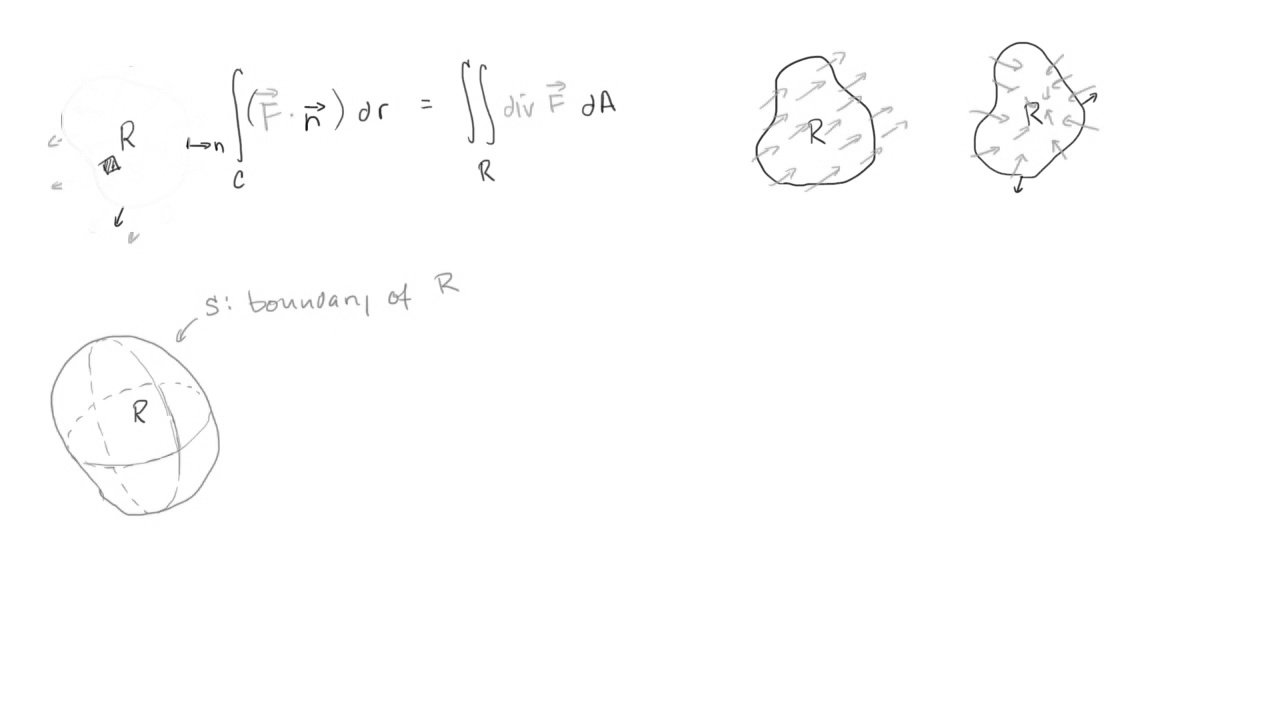 R
n ∫ ( F⃗ · n⃗ ) dr = ∬ div F⃗ dA
C
R
R
R
S: boundary of R
R